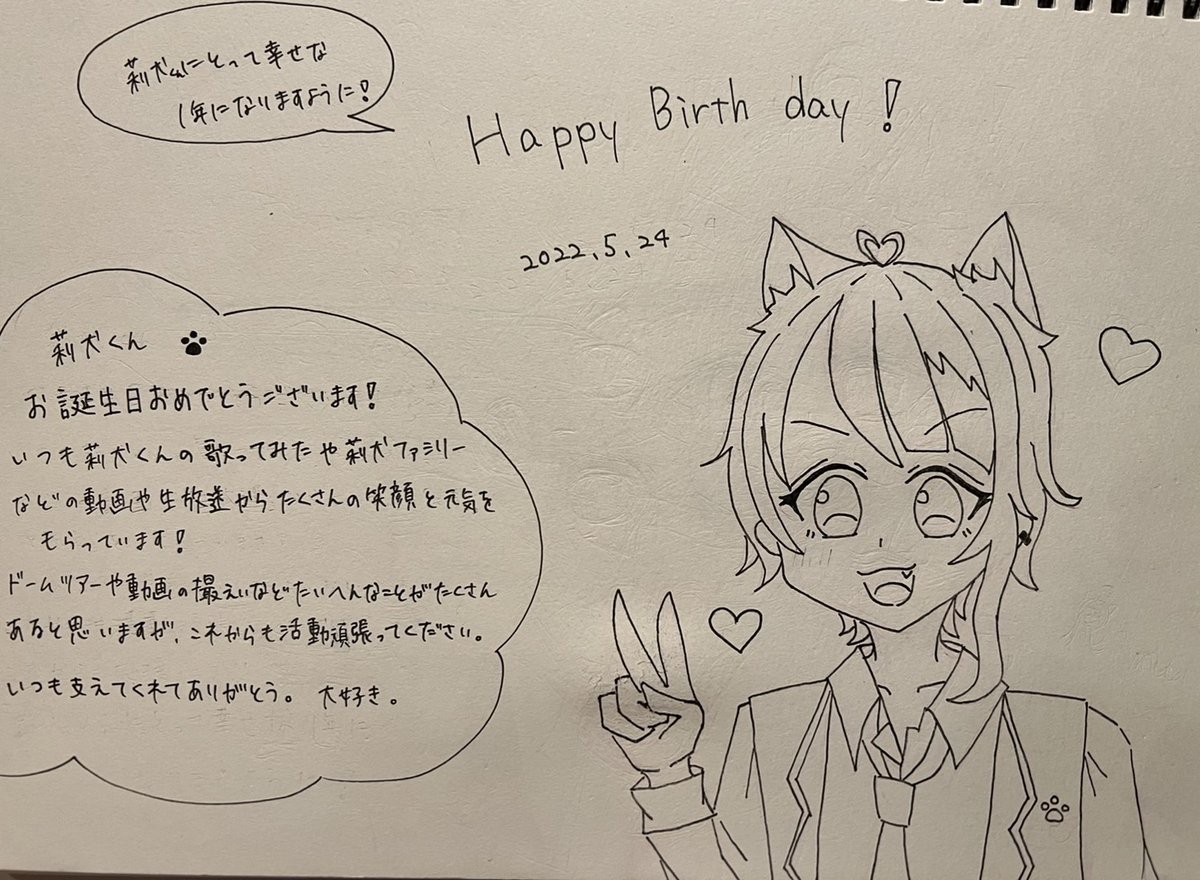 莉犬くんにとって幸せな
1年になりますように!
Happy Birth day!
2022.5.24
莉犬くん
お誕生日おめでとうございます!
いつも莉犬くんの歌ってみたや莉犬ファミリー
などの動画や生放送からたくさんの笑顔と元気を
もらっています!
ドームツアーや動画の撮えいなどたいへんなことがたくさん
あると思いますが、これからも活動頑張ってください。
いつも支えてくれてありがとう。 大好き。